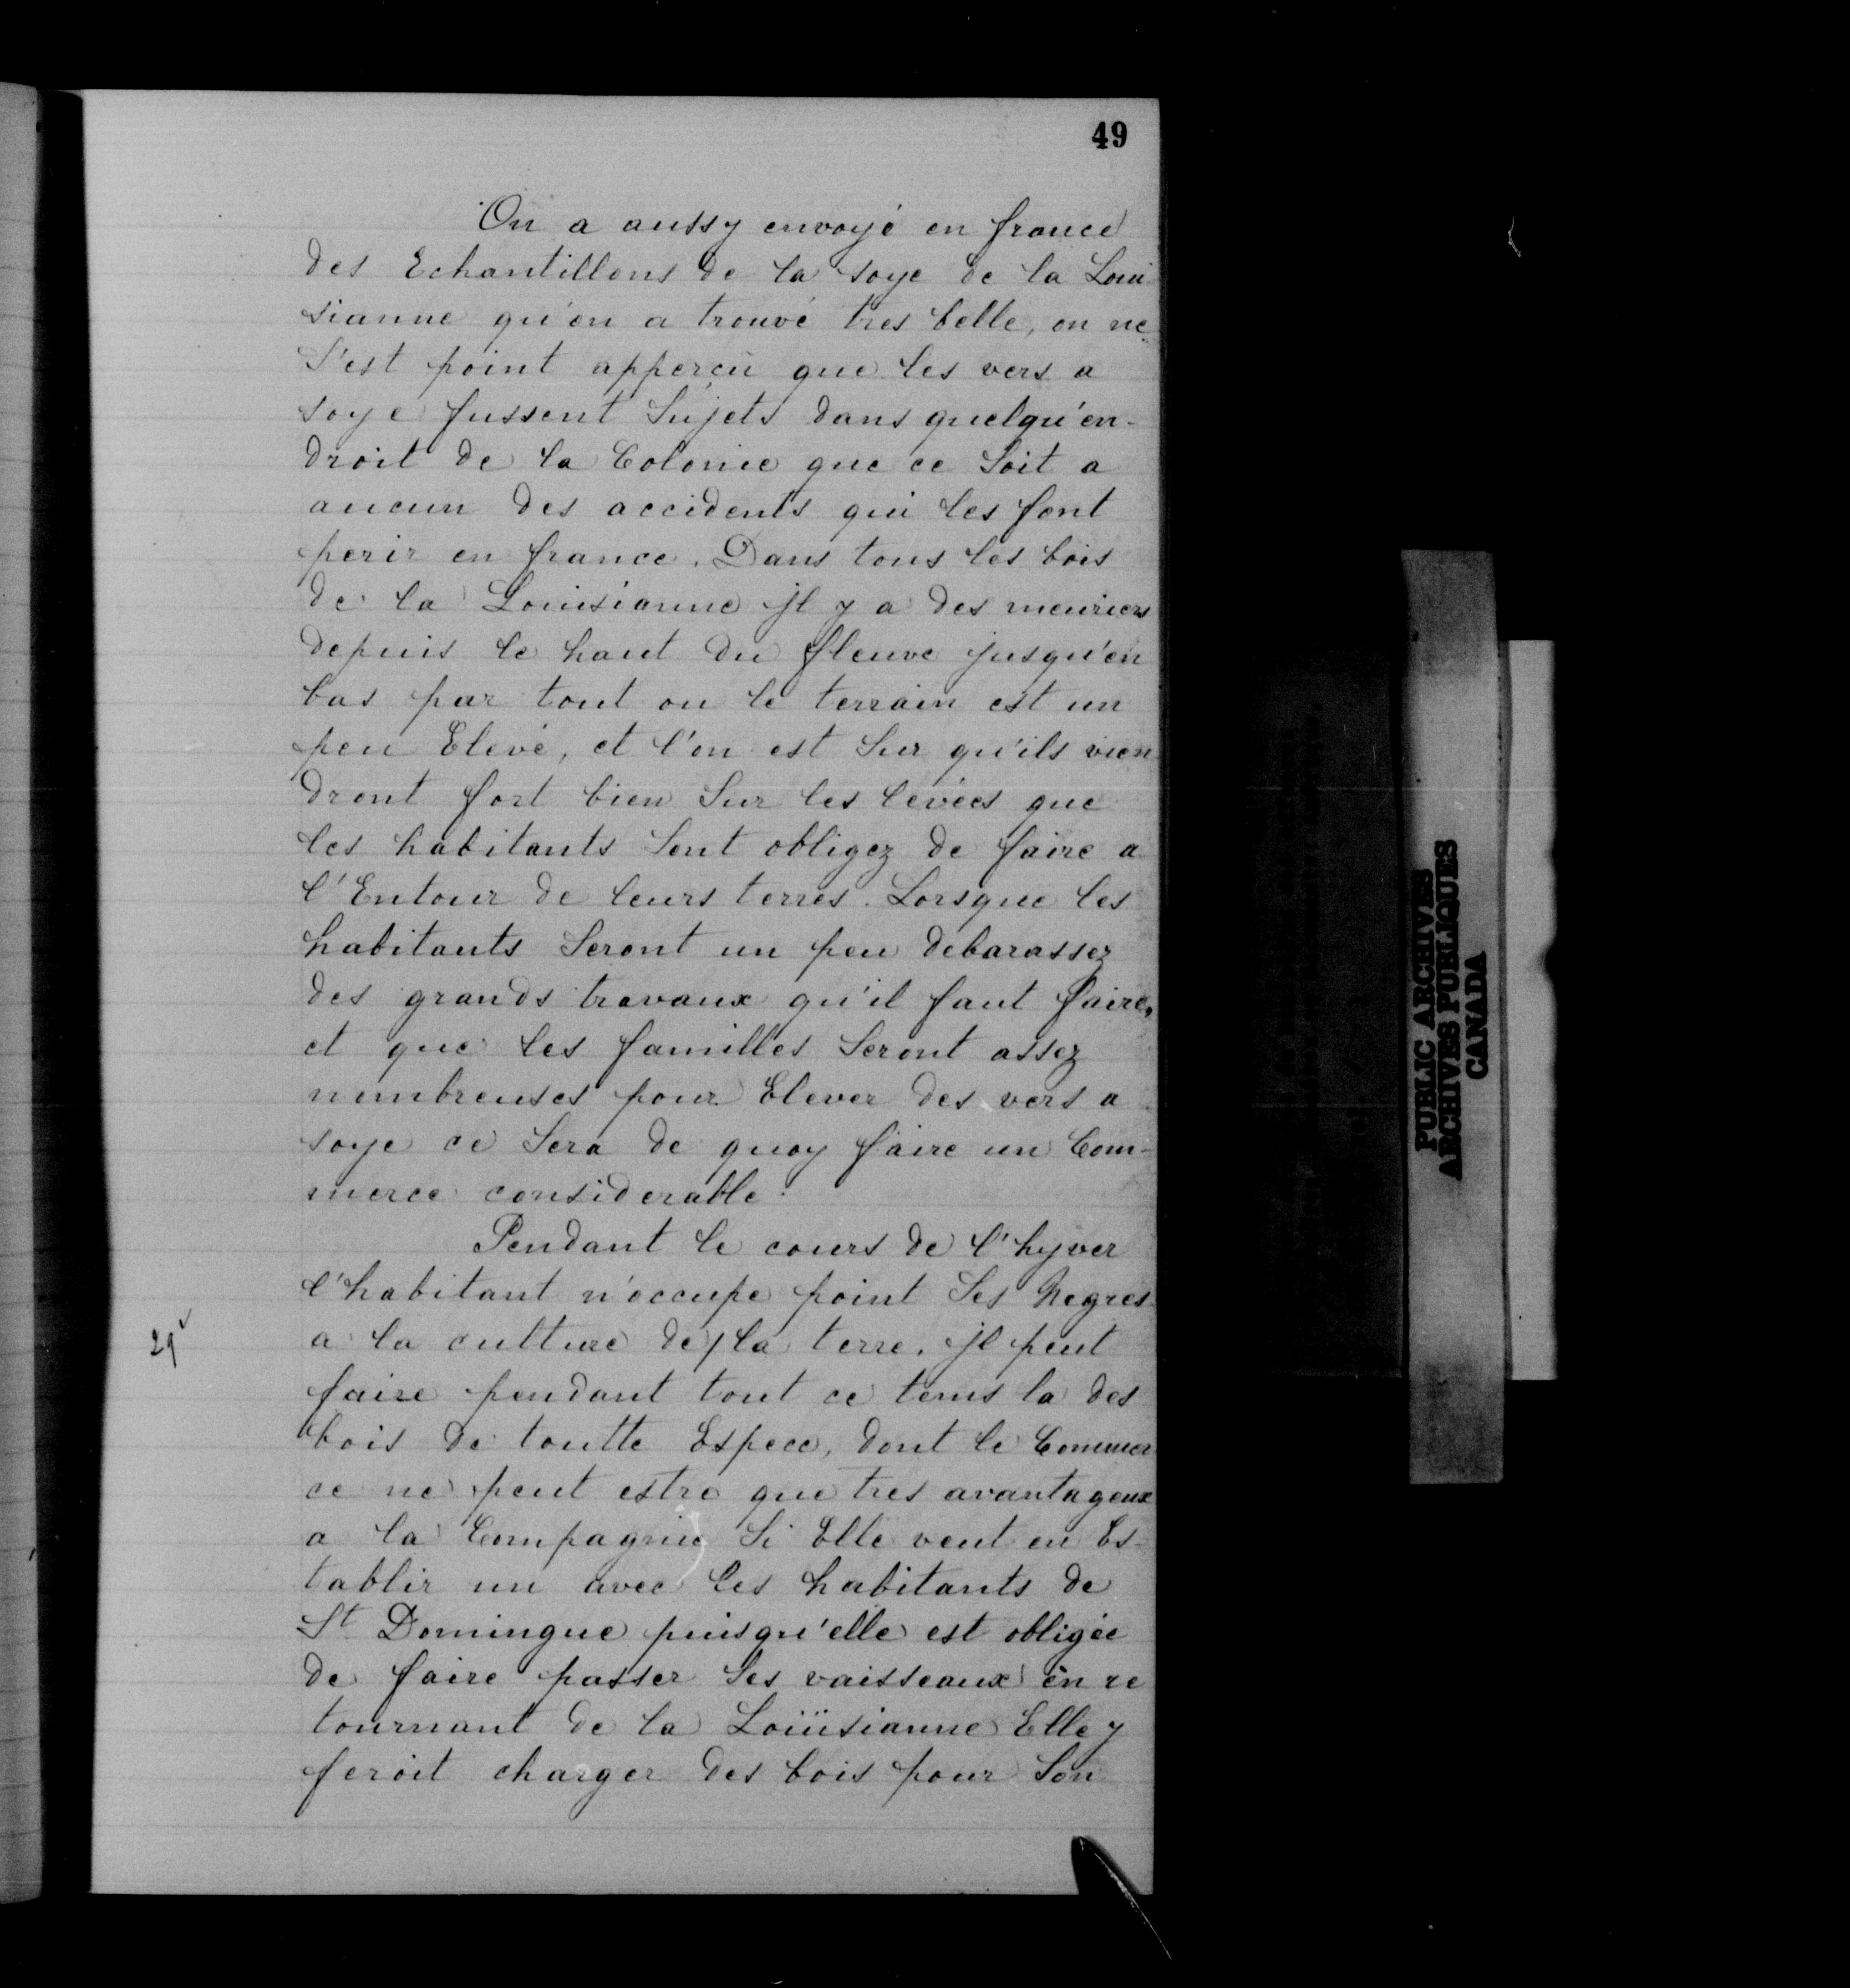 49
On a aussy envoyé en france
des Echantillons de la soye de la Loui
sianne qu'on a trouvé tres belle, on ne
S'est point apperçu que les vers a
soye fussent Sujets dans quelqu'en-
droit de la Colonie que ce Soit a
aucun des accidents qui les font
perir en france. Dans tous les bois
de la Louisianne jl y a des meuriers
depuis le haut du fleuve jusqu'en
bas par tout ou le terrain est un
peu Elevé, et l'on est Sur qu'ils vien
dront fort bien Sur les levées que
les habitants Sont obligez de faire a
l'Entour de leurs terres. Lorsque les
habitants Seront un peu debarassez
des grands travaux qu'il faut faire,
et que les familles Seront assez
nombreuses pour Elever des vers a
soye ce Sera de quoy faire un Com-
merce considerable.
Pendant le cours de l'hyver
l'habitant n'occupe point Ses Negres
29v
a la culture de/la terre. jl peut
faire pendant tout ce tems la des
bois de toutte Espece, dont le Commer
ce ne peut estre que tres avantageux
a la Compagnie Si Elle veut en Es-
tablir un avec les habitants de
St Domingue puisqu'elle est obligée
de faire passer Ses vaisseaux en re
tournant de la Loüisianne Elle y
feroit charger des bois pour Son
PUBLIC ARCHIVES
ARCHIVES PUBLIQUES
CANADA